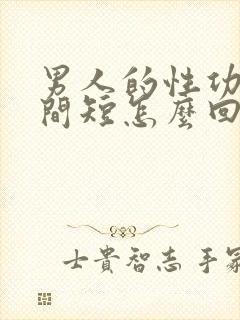 男人的性功
間短怎麼回
士貴智志 手冢